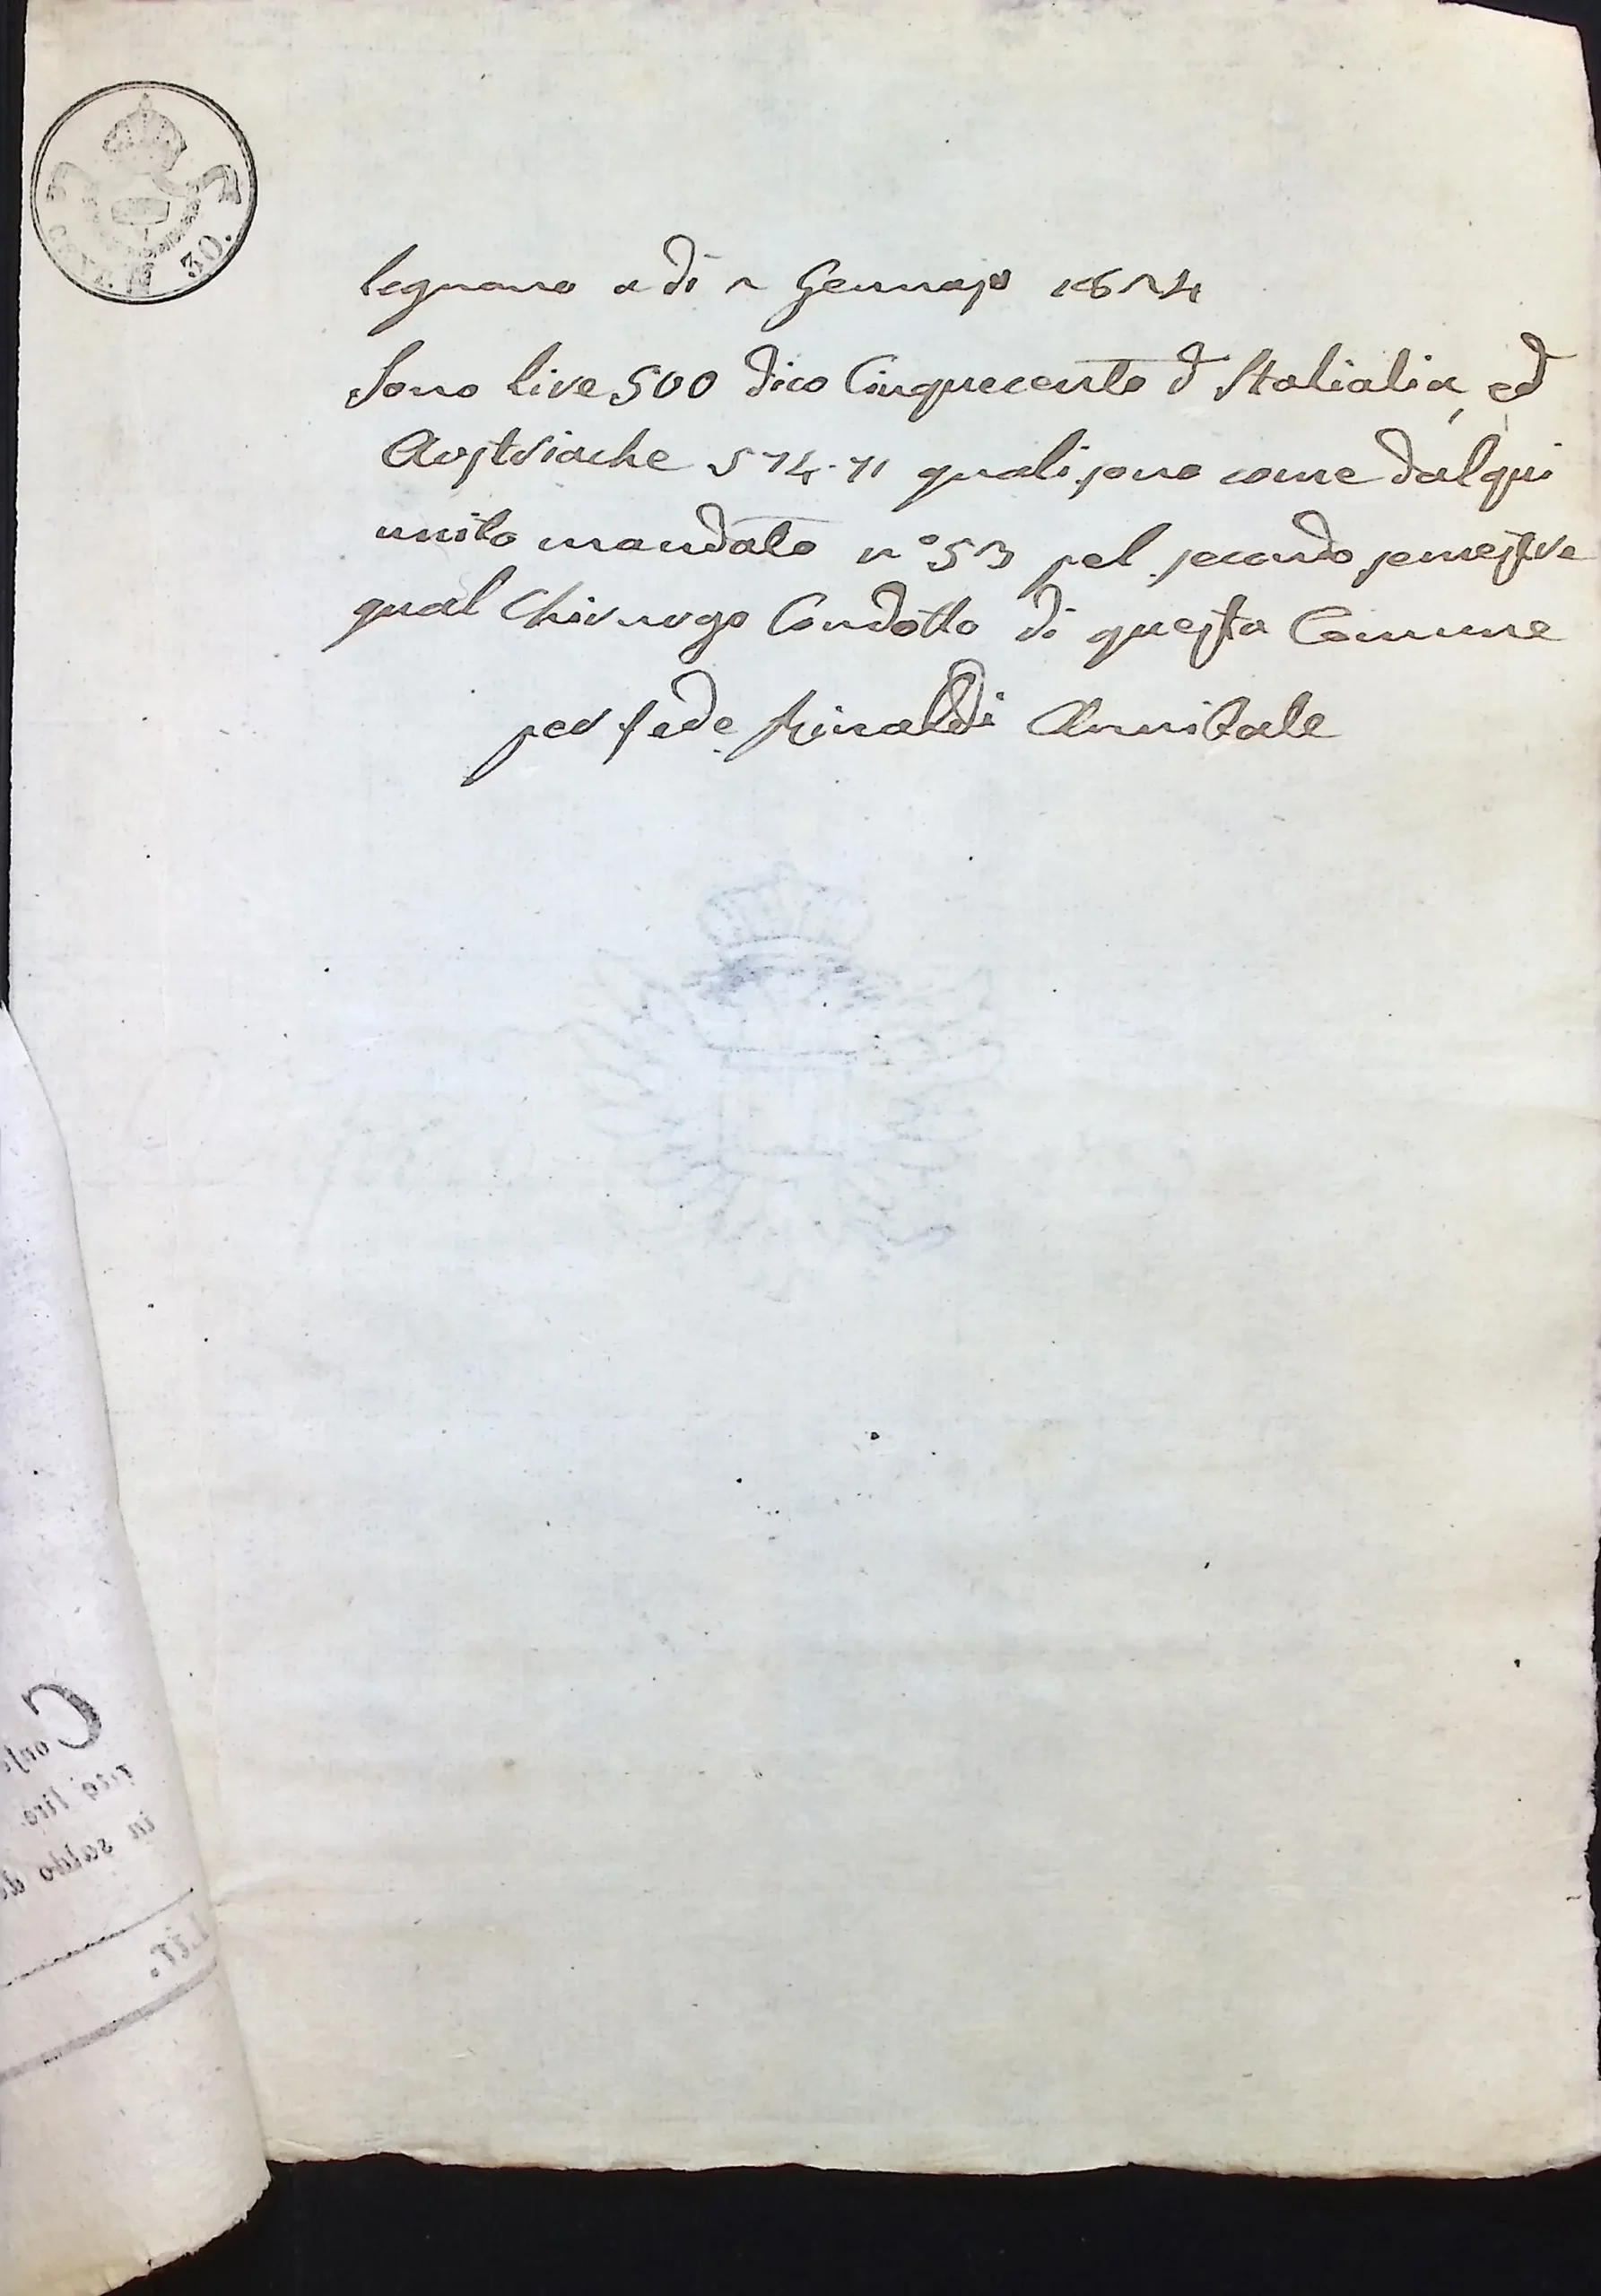 CENT. 30.
legnano a di 2 Gennajo 1824
Sono live 500 dico Cinquecento d Italialia, ed
Austriache 574.71 quali sono come dal qui
unito mandato n° 53 pel secondo semestre
qual Chirurgo Condotto di questa Comune
per fede Rinaldi Annibale
C
in saldo d
Lir.